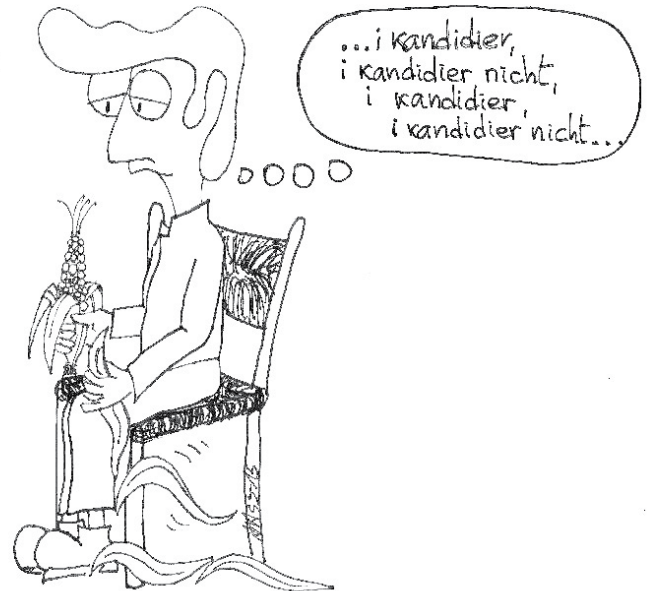 ...i kandidier,
i kandidier nicht,
i kandidier,
i kandidier nicht...